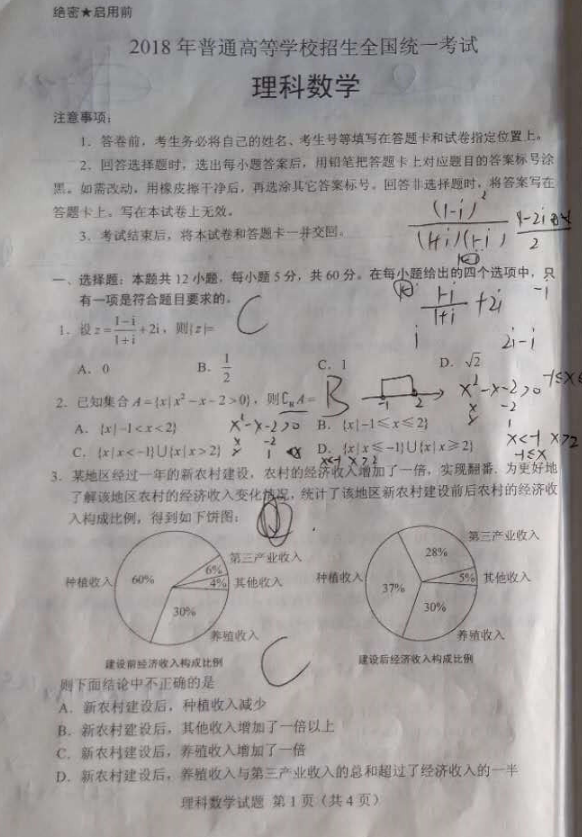 绝密★启用前
2018 年普通高等学校招生全国统一考试
理科数学
注意事项：
1．答卷前，考生务必将自己的姓名、考生号等填写在答题卡和试卷指定位置上。
2．回答选择题时，选出每小题答案后，用铅笔把答题卡上对应题目的答案标号涂
黑。如需改动，用橡皮擦干净后，再选涂其它答案标号。回答非选择题时，将答案写在
答题卡上。写在本试卷上无效。
3．考试结束后，将本试卷和答题卡一并交回。
(1-i)²
(1+i)(1-i)
2
一、选择题：本题共 12 小题，每小题 5 分，共 60 分。在每小题给出的四个选项中，只
有一项是符合题目要求的。
1-i/1+i +2i
-1
i
2i-i
1．设 z = (1-i)/(1+i) + 2i，则|z|=
C
A．0 B．1/2 C．1 D．√2
2．已知集合 A={x|x²-x-2>0}，则∁RA=
B
-1 2
x²-x-2>0
A．{x|-1<x<2} B．{x|-1≤x≤2}
x²-x-2>0
x -2
x 1
C．{x|x<-1}∪{x|x>2} D．{x|x≤-1}∪{x|x≥2}
x<-1 x>2
x<-1 x>2
-1≤x
3．某地区经过一年的新农村建设，农村的经济收入增加了一倍，实现翻番．为更好地
了解该地区农村的经济收入变化情况，统计了该地区新农村建设前后农村的经济收
入构成比例，得到如下饼图：
第三产业收入
6%
4% 其他收入
种植收入 60%
30%
养殖收入
建设前经济收入构成比例
第三产业收入
28%
5% 其他收入
种植收入 37%
30%
养殖收入
建设后经济收入构成比例
C
则下面结论中不正确的是
A．新农村建设后，种植收入减少
B．新农村建设后，其他收入增加了一倍以上
C．新农村建设后，养殖收入增加了一倍
D．新农村建设后，养殖收入与第三产业收入的总和超过了经济收入的一半
理科数学试题 第 1 页（共 4 页）